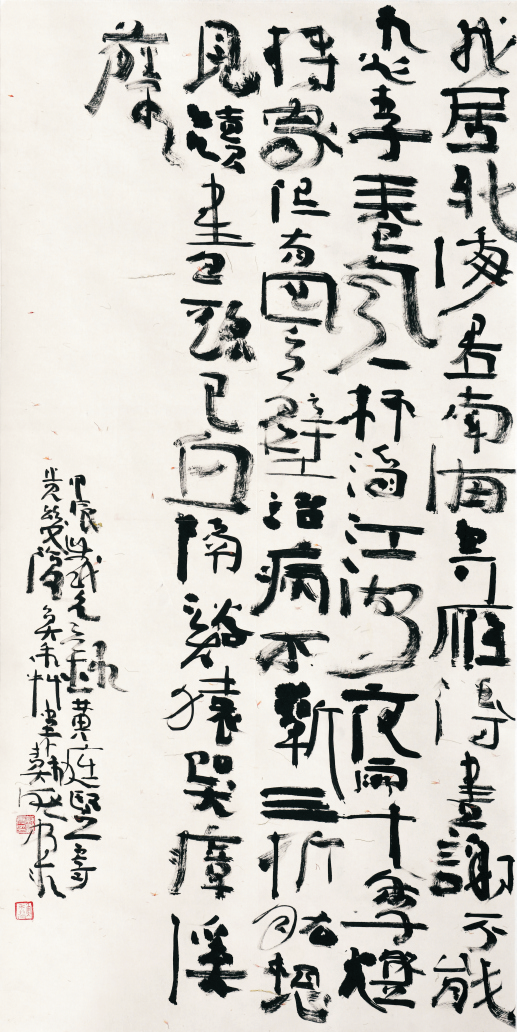 我居北海君南海寄雁傳書謝不能
桃李春風一杯酒江湖夜雨十年燈
持家但有四立壁治病不蘄三折肱想
見讀書頭已白隔谿猿哭瘴溪
藤
甲辰 黃庭堅寄